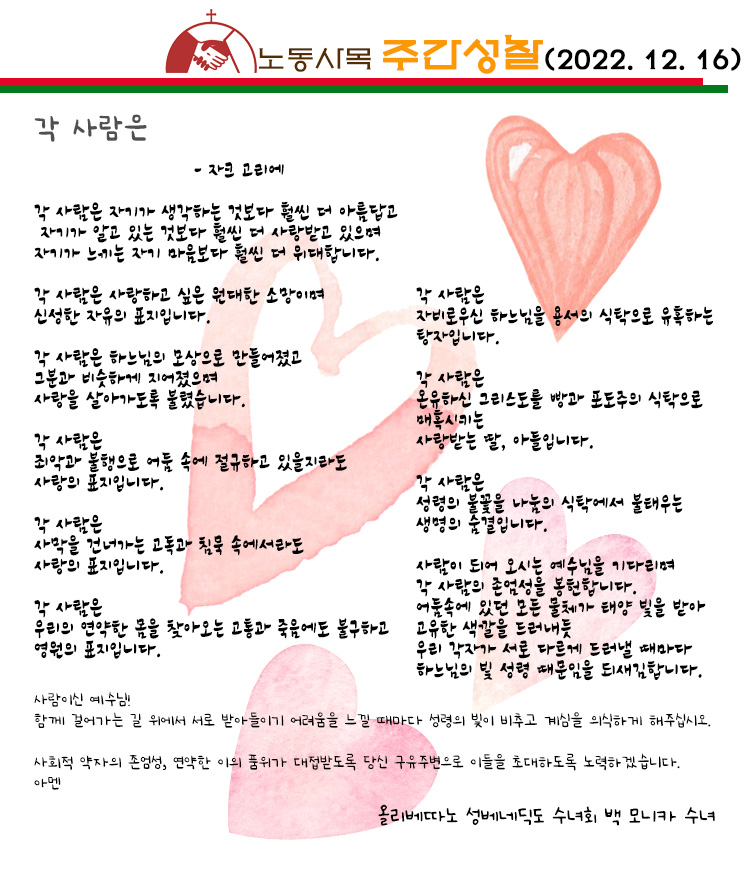 노동사목 주간성찰(2022. 12. 16)
각 사람은
- 자크 고리에
각 사람은 자기가 생각하는 것보다 훨씬 더 아름답고
자기가 알고 있는 것보다 훨씬 더 사랑받고 있으며
자기가 느끼는 자기 마음보다 훨씬 더 위대합니다.
각 사람은 사랑하고 싶은 원대한 소망이며
신성한 자유의 표지입니다.
각 사람은 하느님의 모상으로 만들어졌고
그분과 비슷하게 지어졌으며
사랑을 살아가도록 불렸습니다.
각 사람은
죄악과 불행으로 어둠 속에 절규하고 있을지라도
사랑의 표지입니다.
각 사람은
사막을 건너가는 고독과 침묵 속에서라도
사랑의 표지입니다.
각 사람은
우리의 연약한 몸을 찾아오는 고통과 죽음에도 불구하고
영원의 표지입니다.
각 사람은
자비로우신 하느님을 용서의 식탁으로 유혹하는
탕자입니다.
각 사람은
온유하신 그리스도를 빵과 포도주의 식탁으로
매혹시키는
사랑받는 딸, 아들입니다.
각 사람은
성령의 불꽃을 나눔의 식탁에서 불태우는
생명의 숨결입니다.
사람이 되어 오시는 예수님을 기다리며
각 사람의 존엄성을 봉헌합니다.
어둠속에 있던 모든 물체가 태양 빛을 받아
고유한 색깔을 드러내듯
우리 각자가 서로 다르게 드러낼 때마다
하느님의 빛 성령 때문임을 되새김합니다.
사람이신 예수님!
함께 걸어가는 길 위에서 서로 받아들이기 어려움을 느낄 때마다 성령의 빛이 비추고 계심을 의식하게 해주십시오.
사회적 약자의 존엄성, 연약한 이의 품위가 대접받도록 당신 구유주변으로 이들을 초대하도록 노력하겠습니다.
아멘
올리베따노 성베네딕도 수녀회 백 모니카 수녀